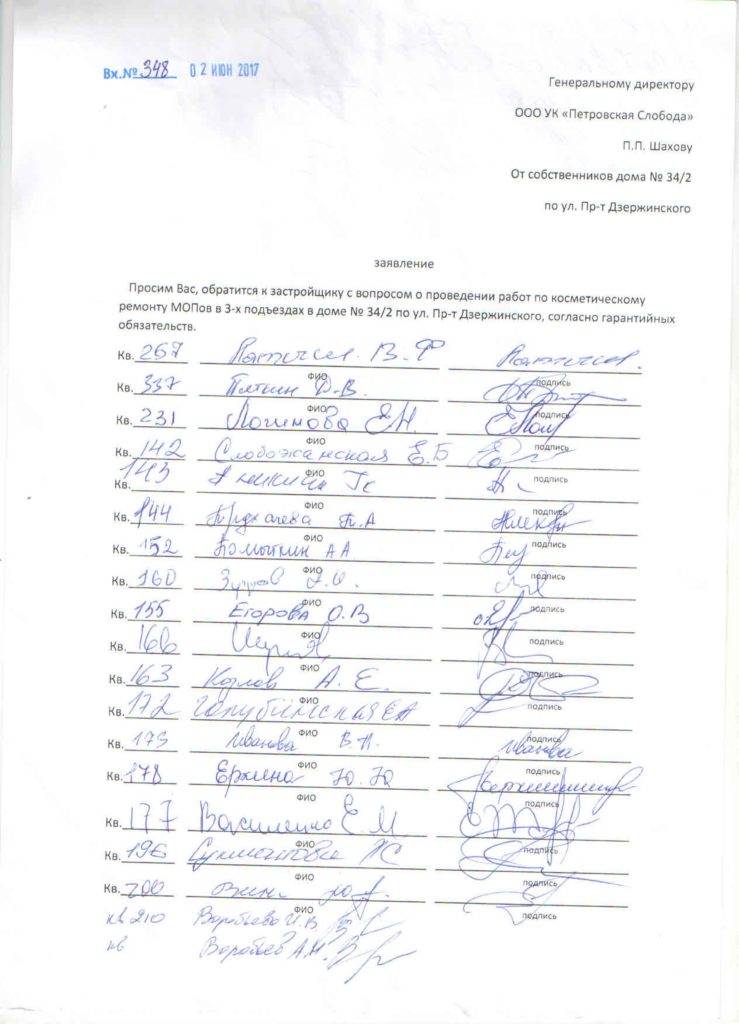 Вх.№ 348 02 ИЮН 2017
Генеральному директору
ООО УК «Петровская Слобода»
П.П. Шахову
От собственников дома № 34/2
по ул. Пр-т Дзержинского
заявление
Просим Вас, обратится к застройщику с вопросом о проведении работ по косметическому
ремонту МОПов в 3-х подъездах в доме № 34/2 по ул. Пр-т Дзержинского, согласно гарантийных
обязательств.
Кв. 267 В. Ф
ФИО подпись
Кв. 337 Пяткин Д.В.
ФИО подпись
Кв. 231 Логинова ЕН
ФИО подпись
Кв. 142 Слобожанская Е.Б
ФИО подпись
Кв. 143
ФИО подпись
Кв. 144 П.А
ФИО подпись
Кв. 152 АА
ФИО подпись
Кв. 160
ФИО подпись
Кв. 155 Егорова О.В
ФИО подпись
Кв. 166
ФИО подпись
Кв. 163 Козлов А. Е.
ФИО подпись
Кв. 172 ЕА
ФИО подпись
Кв. 173 Иванова В.Н. Иванова
ФИО подпись
Кв. 178 Еркина Ю.Ю
ФИО подпись
Кв. 177 Василенко Е.М
ФИО подпись
Кв. 196
ФИО подпись
Кв. 200
ФИО подпись
кв 210 Воробьева И.В.
кв Воробьев А.М.